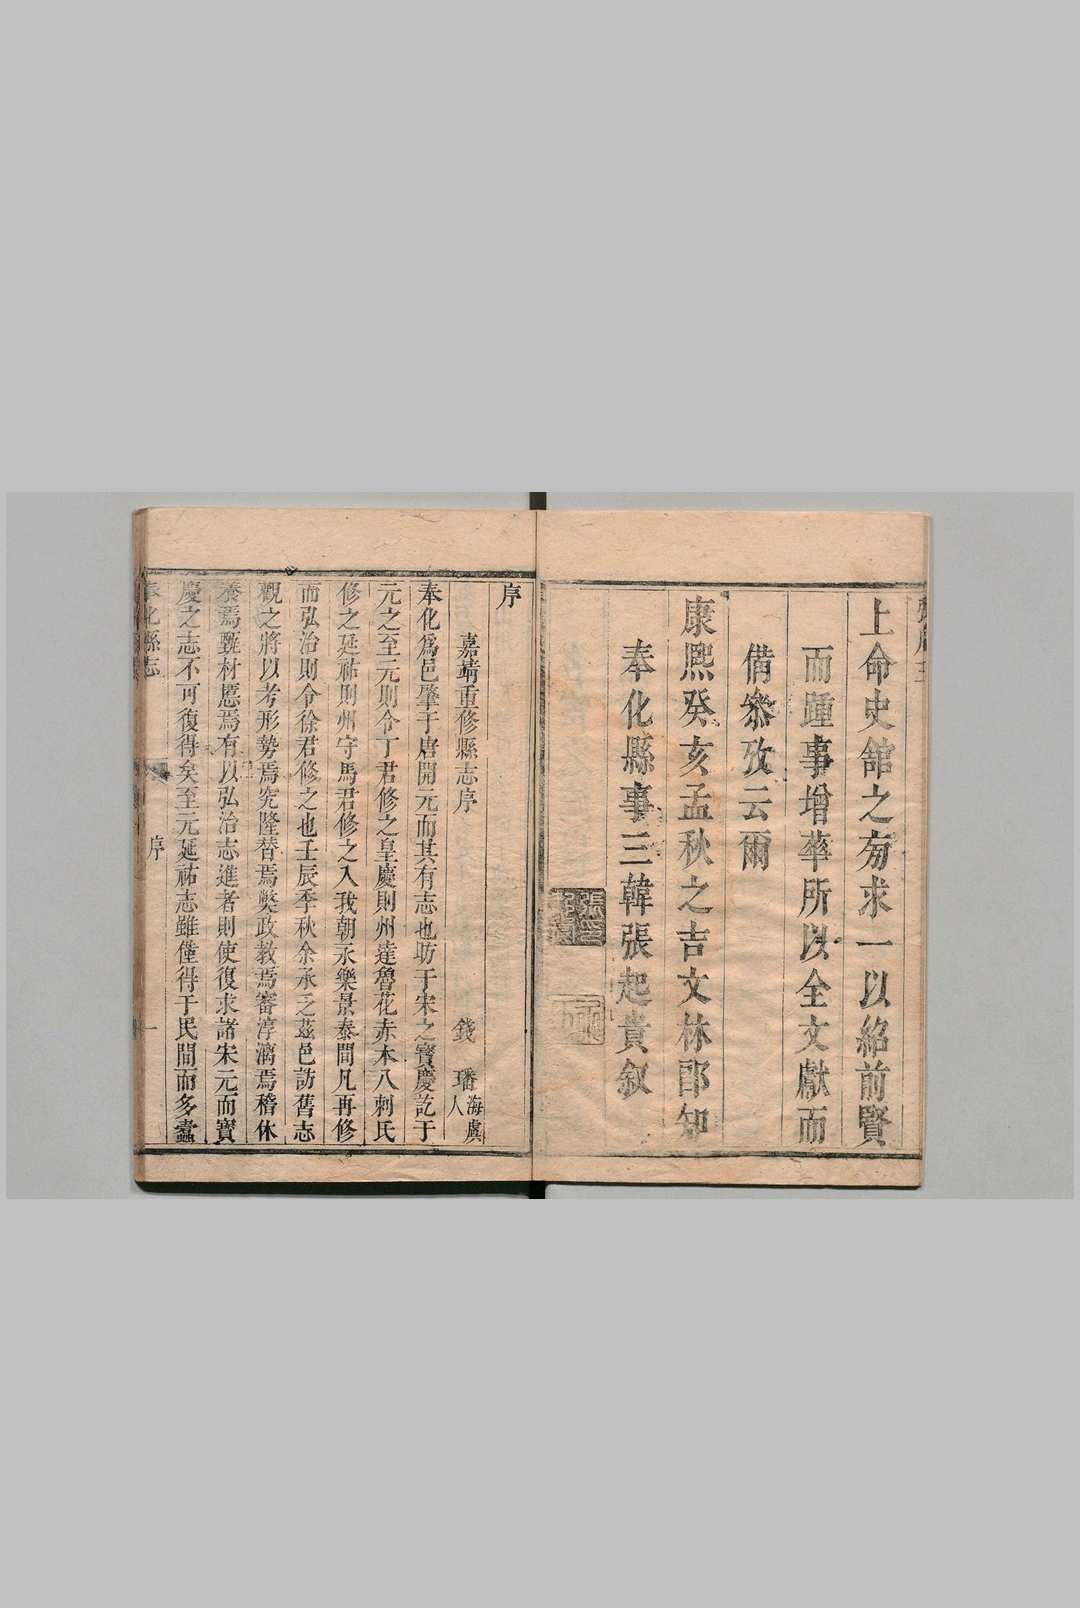 上命史舘之旁求一以紹前賢
而踵事增華所以全文獻而
備叅攷云爾
康熙癸亥孟秋之吉文林郎知
奉化縣事三韓張起貴叙
序
嘉靖重修縣志序
錢 璠海虞人
奉化爲邑肇于唐開元而其有志也昉于宋之寳慶訖于
元之至元則令丁君修之皇慶則州達魯花赤木八剌氏
修之延祐則州守馬君修之入我朝永樂景泰間凡再修
而弘治則令徐君修之也壬辰季秋余承乏茲邑訪舊志
觀之將以考形勢焉究隆替焉樊政教焉審淳漓焉稽休
養焉甄材慝焉有以弘治志進者則使復求諸宋元而寳
慶之志不可復得矣至元延祐志雖僅得于民間而多蠹
奉化縣志
序
一